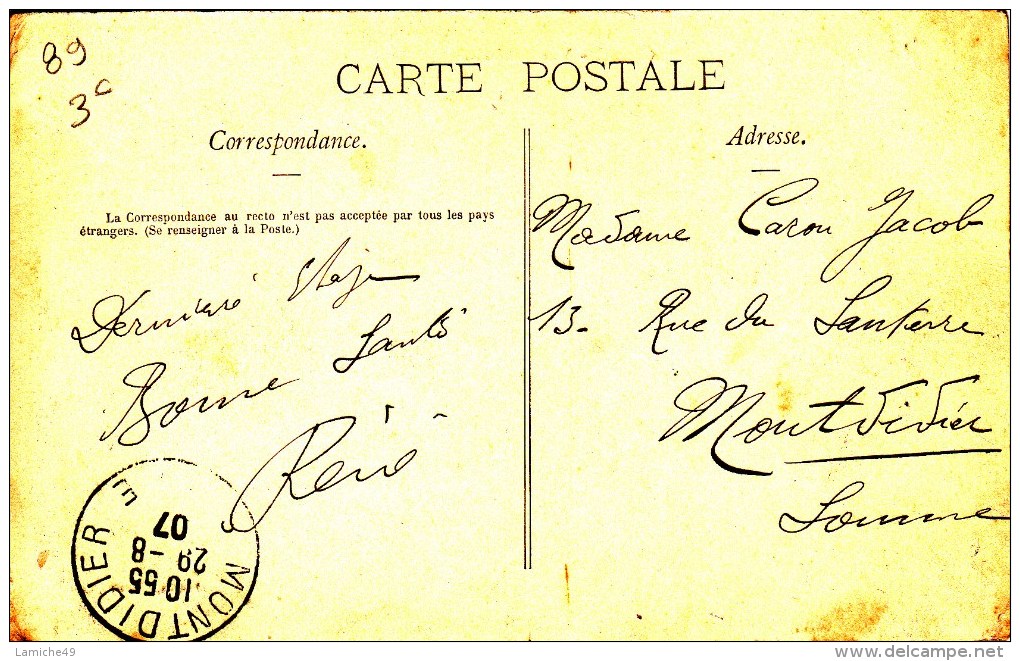 89
3c
CARTE POSTALE
Correspondance.
Adresse.
La Correspondance au recto n'est pas acceptée par tous les pays
étrangers. (Se renseigner à la Poste.)
Dernière
Bonne Santé
René
Madame Caron Jacob
13. Rue du Santerre
Montdidier
Somme
MONTDIDIER
10 55
29 - 8
07
Lamiche49
www.delcampe.net